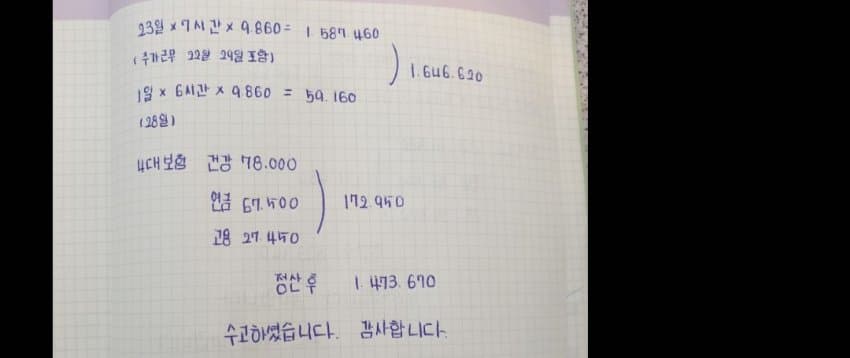 23일 × 7시간 × 9.860 = 1.587.460
(추가근무 22일 29일 포함)
1.646.620
1일 × 6시간 × 9.860 = 59.160
(28일)
4대보험 건강 78.000
연금 67.500
172.950
고용 27.450
정산 후 1.473.670
수고하셨습니다. 감사합니다.